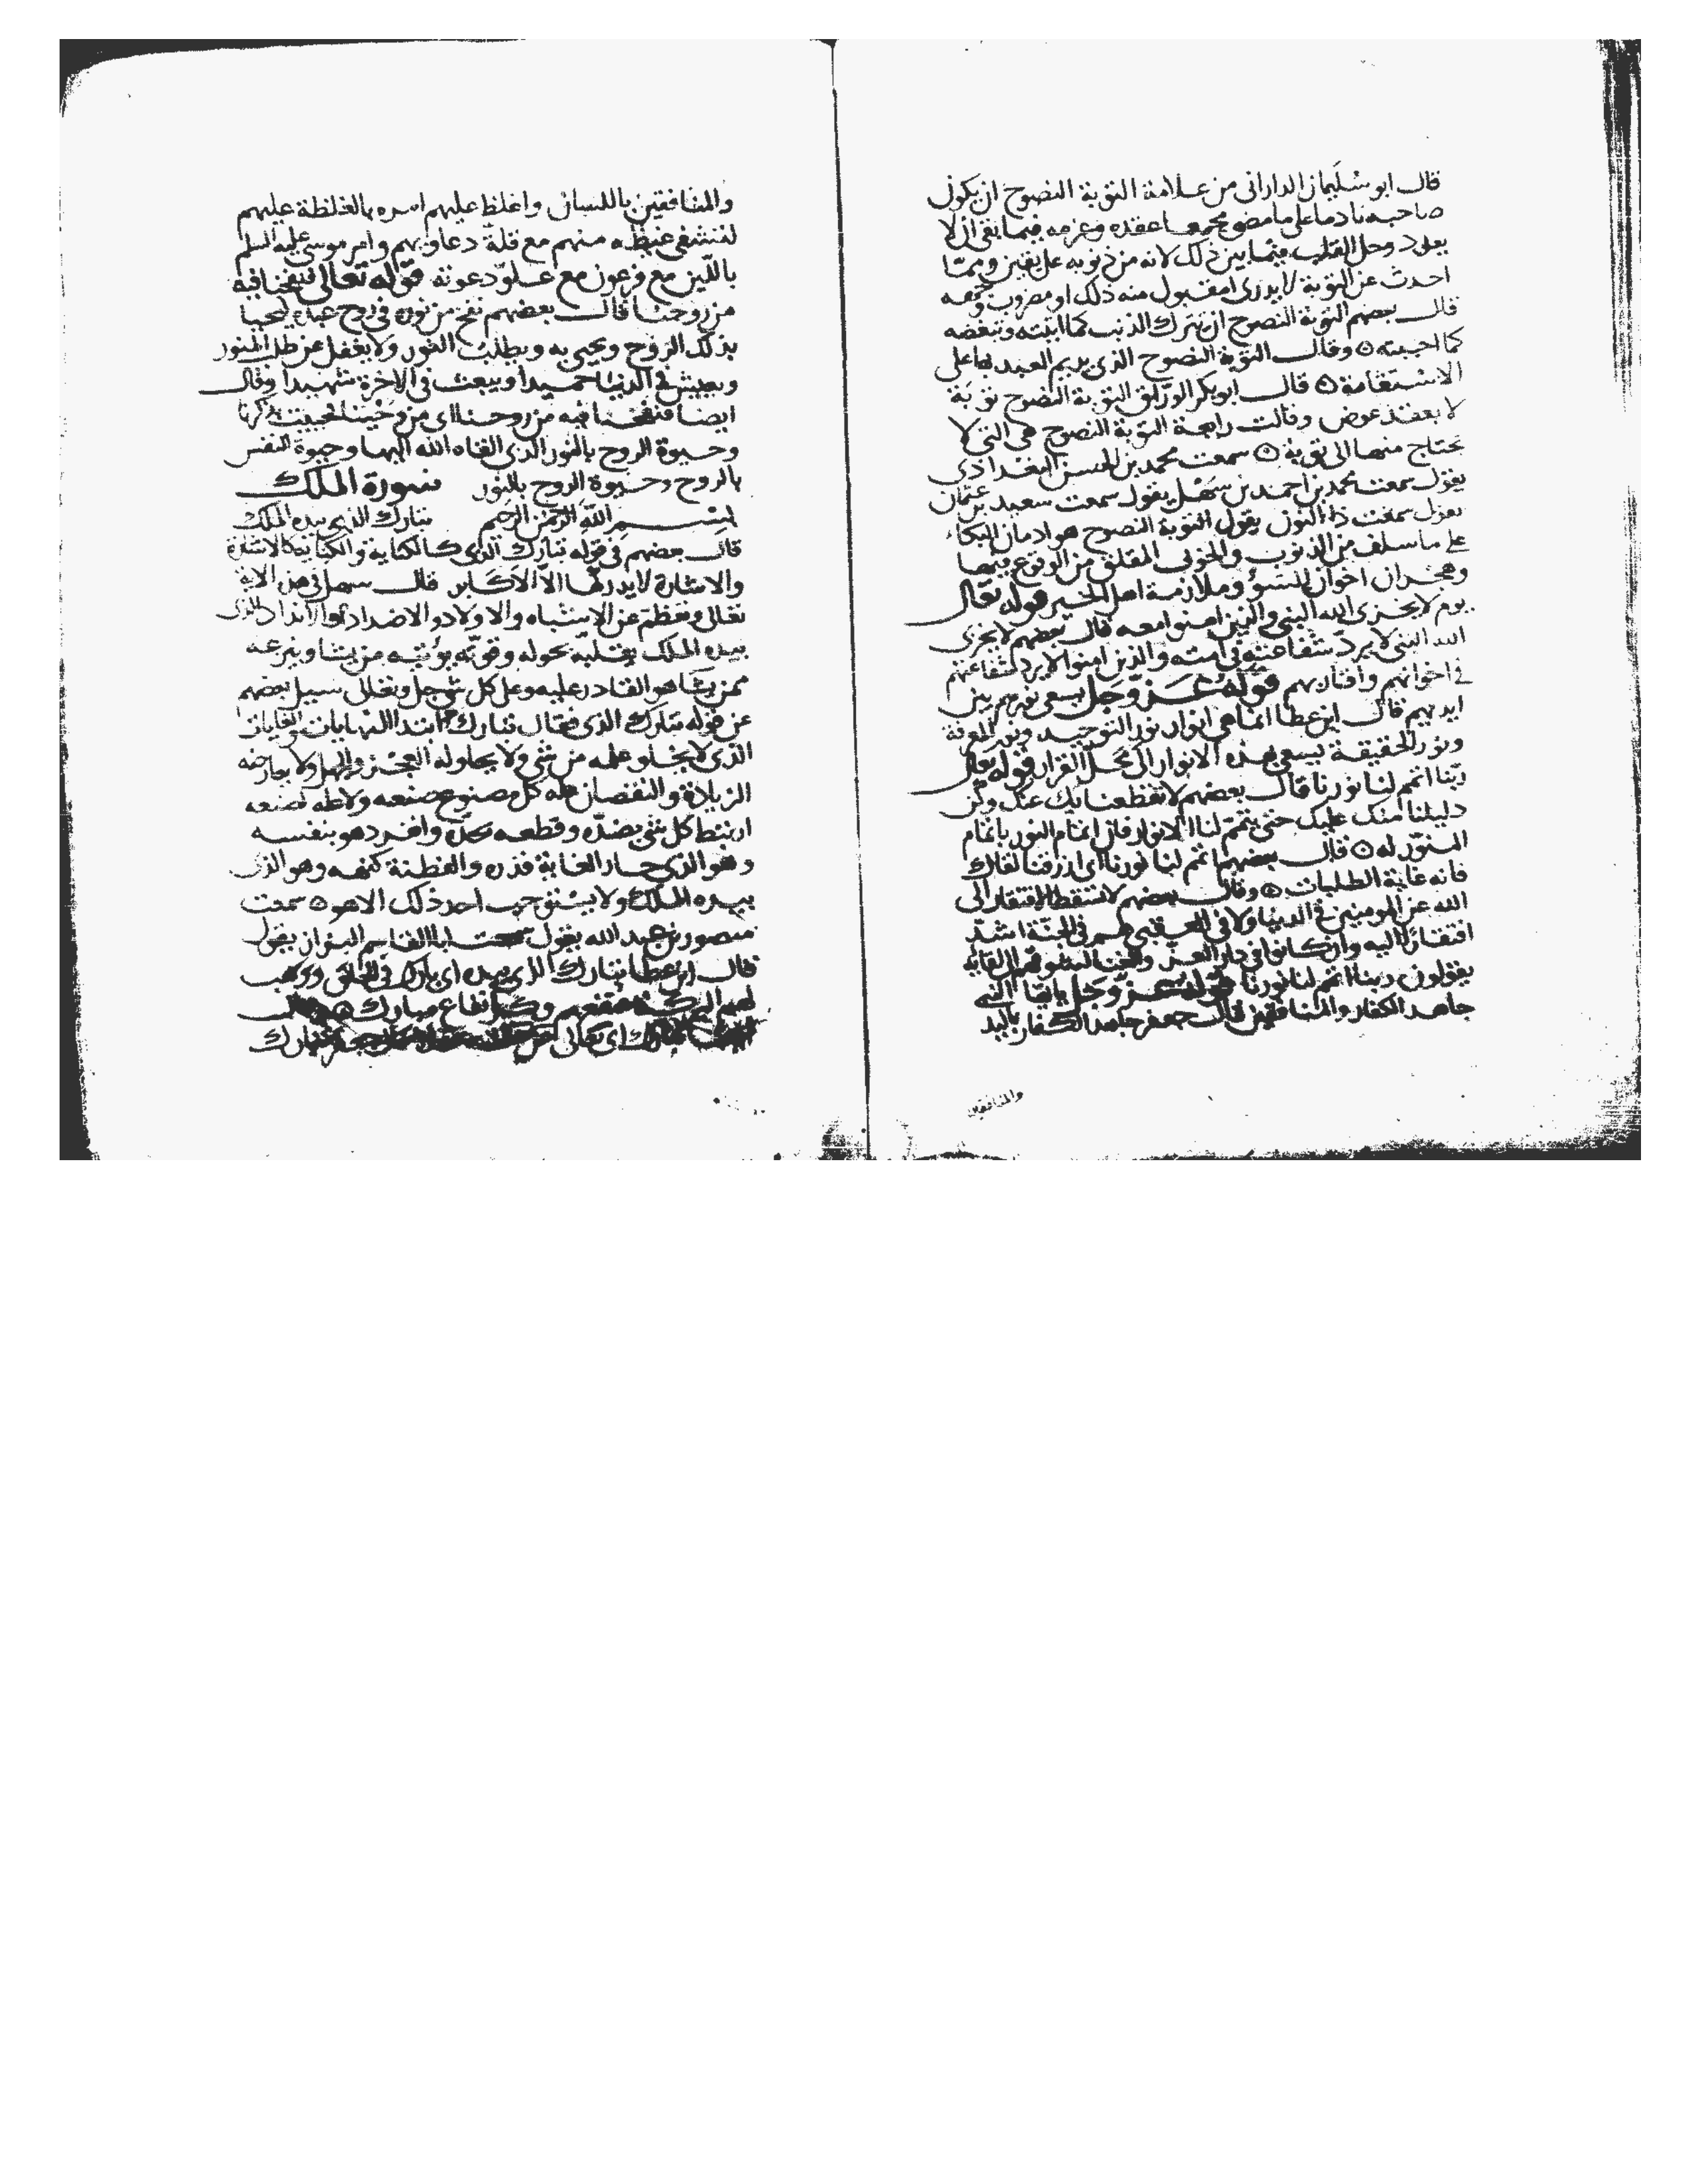 قال ابو سليمان الداراني من علامة التوبة النصوح ان يكون
صاحبه نادما على ما مضى مجمعا عقده وعزمه فيما بقى ان لا
يعاود وحل القلب فيما بين ذلك لانه من ذنوبه على يقين ومما
احدث عن التوبة لا يدرى امقبول منه ذلك او مضروب وجهه
قال بعضهم التوبة النصوح ان تترك الذنب كما اتيته وتبغضه
كما احببته ه وقال التوبة النصوح الذي يديم العبد بها على
الاستقامة ه قال ابو بكر الوراق التوبة النصوح توبة
لا بعقد عوض وقالت رابعة التوبة النصوح هي التي لا
تحتاج منها الى توبة ه سمعت محمد بن الحسن البغدادي
يقول سمعت محمد بن احمد بن سهل يقول سمعت سعيد بن عثمان
يقول سمعت ذا النون يقول التوبة النصوح هو ادمان البكاء
على ما سلف من الذنوب والخوف المقلق من الوقوع فيها
وهجران اخوان السوء وملازمة اهل الخير قوله تعالى
يوم لا يخزى الله النبي والذين امنوا معه قال بعضهم لا يخزى
الله النبي لا يرد شفاعته في امته والذين امنوا لا يرد شفاعتهم
في اخوانهم واقاربهم قوله عز وجل يسعى نورهم بين
ايديهم قال ابن عطا انما هي انوار نور التوحيد ونور المعرفة
ونور الحقيقة يسعى بهذه الانوار الى محل القرار قوله تعالى
ربنا اتمم لنا نورنا قال بعضهم لا تقطعنا بك عنك وكن
دليلنا منك عليك حتى يتمم لنا الانوار فان اتمام النور باتمام
المنور له ه قال بعضهم اتمم لنا نورنا اى ارزقنا لقاك
فانه غاية الطلبات ه وقال بعضهم لا تسقط الافتقار الى
الله عن المومنين في الدنيا ولا في العقبى هم في الجنة اشد
افتقارا اليه وان كانوا في دار العز والغنا لشوقهم الى لقائه
يقولون ربنا اتمم لنا نورنا قوله عز وجل يايها النبي
جاهد الكفار والمنافقين قال جعفر جاهد الكفار باليد
والمنافقين
والمنافقين باللسان واغلظ عليهم امره بالغلظة عليهم
لتشفى غيظه منهم مع قلة دعاويهم وامر موسى عليه السلم
باللين مع فرعون مع علو دعوته قوله تعالى فنفخنا فيه
من روحنا قال بعضهم نفخ من نوره في روح عبده ليحيا
بذلك الروح ويحيى به ويطلب النور ولا يغفل عن طلب المنور
ويعيش في الدنيا حميدا ويبعث في الاخرة شهيدا وقال
ايضا فنفخنا فيه من روحنا اى من وحينا
وحيوة الروح بالنور الذي القاه الله اليها وحيوة النفس
بالروح وحيوة الروح بالنور سورة الملك
بسم الله الرحمن الرحيم تبارك الذي بيده الملك
قال بعضهم في قوله تبارك الذي كالكناية والكناية كالاشارة
والاشارة لا يدركها الا الاكابر قال سهل في هذه الاية
تعالى وتعظم عن الاشباه والاولاد والاضداد والانداد الذي
بيده الملك يقلبه بحوله وقوته يؤتيه من يشا وينزعه
ممن يشا هو القادر عليه وعلى كل شي جل وتعالى سيل بعضهم
عن قوله تبارك الذي فقال تبارك ابتدا النهايات والغايات
الذي لا يخلو علمه من شي ولا يحاوله العجز والجهل ولا يعارضه
الزيادة والنقصان علة كل مصنوع صنعه ولا علة لصنعه
ارتبط كل شي بضده وقطعه بحده وانفرد هو بنفسه
وهو الذي قدره والفطنة كنهه وهو الذي
بيده الملك ولا يستوجب احد ذلك الا هو ه سمعت
منصور بن عبد الله يقول سمعت ابا القاسم البزوان يقول
قال ابن عطا تبارك الذي بيده اى بارك في الخلق ووهب
لهم البركة وكل نفاع مبارك
تبارك اى تعالى تبارك